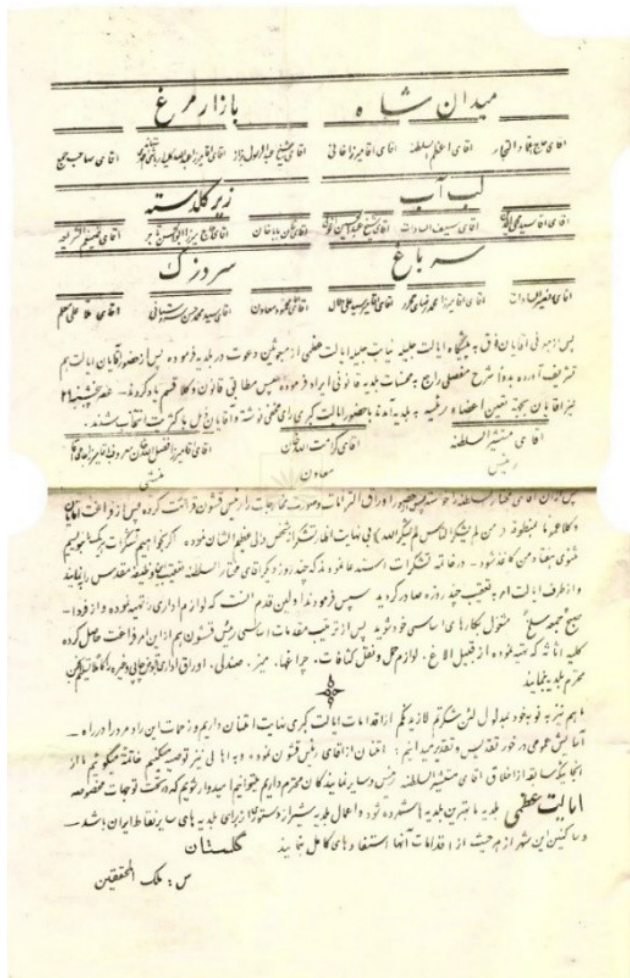 میدان شاه بازار مرغ
آقای حاج بهاء التجار آقای اعظم السلطنه آقای آقا میرزا خانی آقای شیخ عبدالرسول بزاز آقای صاحب جمع
لب آب زیر گلدسته
آقای آقا سید آقای سیف السادات آقای شیخ عبدالحسین آقای خان باباخان آقای حاج میرزا ابوالحسن تاجر
سر باغ سر دزک
آقای السادات آقای آقا میرزا محمد رضای آقای آقا میر سید علی آقای معاون آقای سید محمد حسن آقای ملا علی معلم
پس از معرفی آقایان فوق به پیشگاه ایالت جلیله نیابت جلیله ایالت عظمی از مبعوثین دعوت در بلدیه فرموده پس از حضور آقایان ایالت هم
تشریف آورده بدواً شرح مفصلی راجع به محسنات بلدیه قانونی ایراد فرموده سپس مطابق قانون وکلا قسم یاد کردند – عصر پنجشنبه ۲۱
نیز آقایان بجهة تعیین اعضاء رئیسه به بلدیه آمده با حضور ایالت کبری رأی مخفی نوشته و آقایان ذیل با کثریت انتخاب شدند.
آقای مستشار السلطنه آقای کرامت الله خان آقای آقا میرزا فضل الله خان
رئیس معاون منشی
پس از آن آقای مختار السلطنه را خواسته اوراق التزامات و صورت مخارجات را رئیس قشون قرائت کرده پس از فراغت آقایان
وکلا عموماً بمنطوقه (من لم یشکر الناس لم یشکر الله) بی نهایت اظهار تشکر از شخص عظیم الشان نموده اگر بخواهیم تشکرات بنویسیم
مثنوی هفتاد من کاغذ شود – در خاتمه تشکرات استدعا نمودند که چند روز دیگر آقای مختار السلطنه وظیفه مقدس را بنمایند
و از طرف ایالت امر به تعقیب چند روزه صادر گردید سپس فرمودند اولین قدم آنست که لوازم اداری را تهیه نموده و از فردا –
صبح جمعه سلخ مشغول بکارهای اساسی خود شوید پس از ترتیب مقدمات اساسی رئیش قشون هم از این امر فراغت حاصل کرده
کلیه اثاثه که تهیه نموده از قبیل الاغ، لوازم حمل و نقل کثافات، چراغها، میز، صندلی، اوراق اداری و غیره را کاملا
محترم بلدیه بنمایند
ما هم نیز به نوبه خود بمدلول لئن شکرتم لازیدنکم از اقدامات ایالت کبری نهایت امتنان داریم و زحمات این راد مرد را در راه –
آسایش عمومی در خور تقدیس و تقدیر میدانیم : امتنان از آقای رئیس قشون نموده و به اهالی نیز توصیه میکنیم خاتمة میگوئیم ما از
آنجائیکه سابقه از اخلاق آقای مستشار السلطنه رئیس و سایر نمایندگان محترم داریم میتوانیم امیدوار شویم که در تحت توجهات مخصوصه
ایالت عظمی بلدیه ما بهترین بلدیه ها شمرده شود و اعمال بلدیه شیراز دستور از برای بلدیه های سایر نقاط ایران باشد –
و ساکنین این شهر از هر حیث از اقدامات آنها استفاده های کامل بنمایند گلستان
س : ملک المحققین